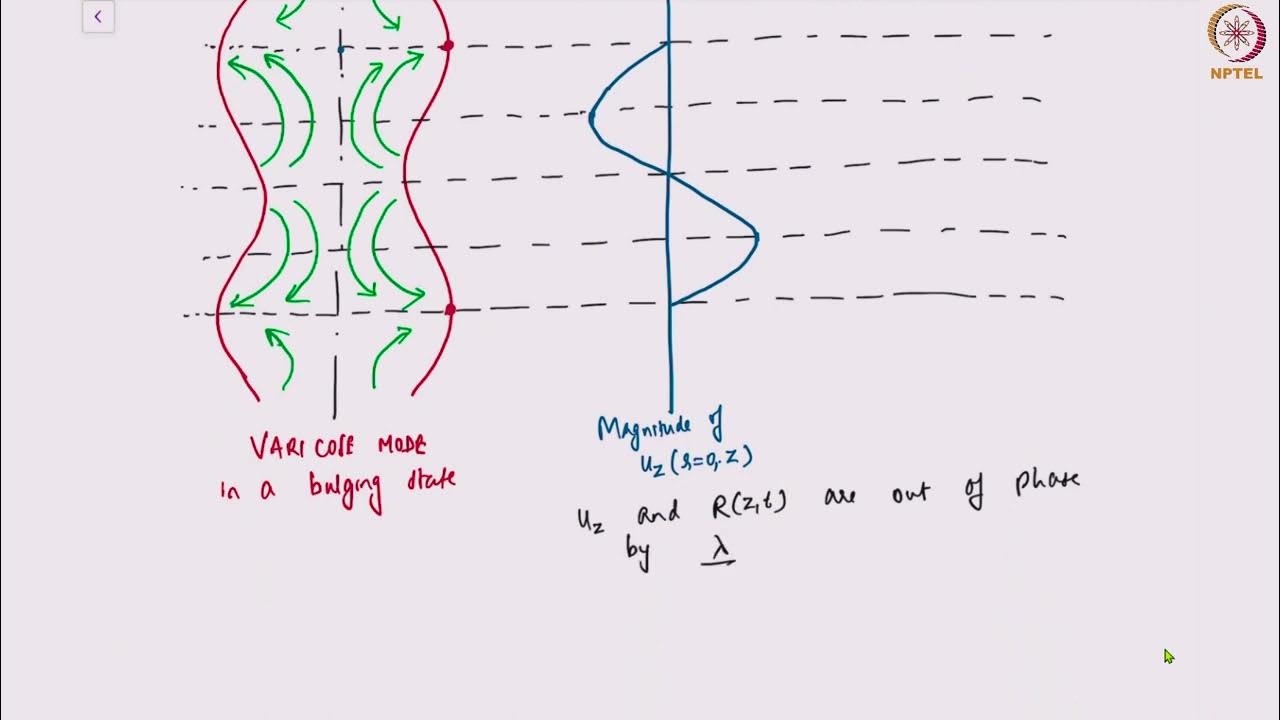 NPTEL
VARICOSE MODE
in a bulging state
Magnitude of
u_z(r=0,z)
u_z and R(z,t) are out of phase
by λ